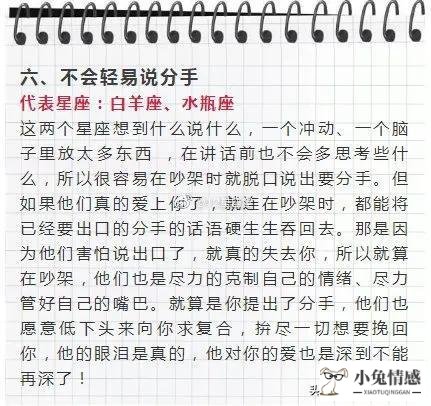 六、不会轻易说分手
代表星座：白羊座、水瓶座
这两个星座想到什么说什么，一个冲动、一个脑
子里放太多东西 ，在讲话前也不会多思考些什
么，所以很容易在吵架时就脱口说出要分手。但
如果他们真的爱上你了，就连在吵架时，都能将
已经要出口的分手的话语硬生生吞回去。那是因
为他们害怕说出口了，就真的失去你，所以就算
在吵架，他们也是尽力的克制自己的情绪、尽力
管好自己的嘴巴。就算是你提出了分手，他们也
愿意低下头来向你求复合，拚尽一切想要挽回
你，他的眼泪是真的，他对你的爱也是深到不能
再深了！
头
小兔情感
XIAOTUQINGGAN